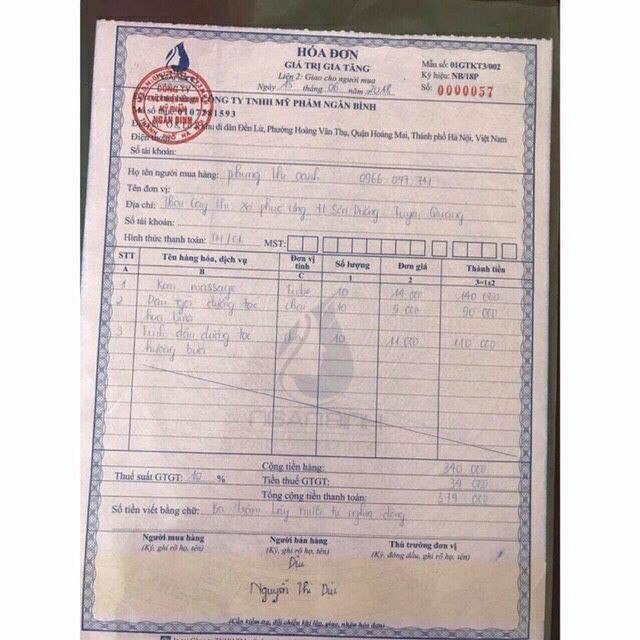 HÓA ĐƠN
GIÁ TRỊ GIA TĂNG
Liên 2: Giao cho người mua
Ngày 15 tháng 06 năm 2018
Mẫu số: 01GTKT3/002
Ký hiệu: NB/18P
Số: 0000057
CÔNG TY
MỸ PHẨM
NGÂN BÌNH
CÔNG TY TNHH MỸ PHẨM NGÂN BÌNH
Mã số thuế: 0107281593
khu di dân Đền Lừ, Phường Hoàng Văn Thụ, Quận Hoàng Mai, Thành phố Hà Nội, Việt Nam
Điện thoại:
Số tài khoản:
Họ tên người mua hàng: phùng thị oanh 0966 097 741
Tên đơn vị:
Địa chỉ: Thôn Cây Thị xã phúc ứng H Sơn Dương Tuyên Quang
Số tài khoản:
Hình thức thanh toán: TM/CK MST:
STT Tên hàng hóa, dịch vụ Đơn vị tính Số lượng Đơn giá Thành tiền
A B C 1 2 3=1x2
1 Kem massage Tube 10 14 000 140 000
2 Dầu gội dưỡng tóc chai 10 9 000 90 000
hoa bưởi
3 Tinh dầu dưỡng tóc chai 10 11 000 110 000
hương bưởi
Cộng tiền hàng: 340 000
Thuế suất GTGT: 10 % Tiền thuế GTGT: 34 000
Tổng cộng tiền thanh toán: 374 000
Số tiền viết bằng chữ: Ba trăm bảy mươi tư nghìn đồng
Người mua hàng Người bán hàng Thủ trưởng đơn vị
(Ký, ghi rõ họ, tên) (Ký, ghi rõ họ, tên) (Ký, đóng dấu, ghi rõ họ, tên)
Dịu
Nguyễn Thị Dịu
(Cần kiểm tra, đối chiếu khi lập, giao, nhận hóa đơn)